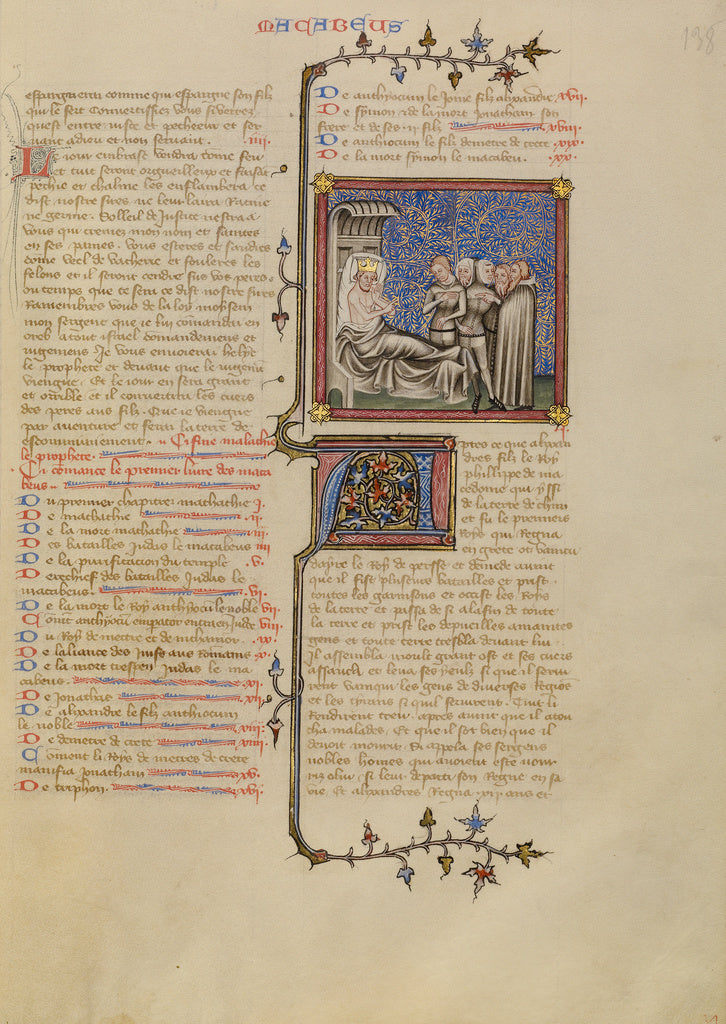 MACABEUS
138
espargneray comme qui espargne son filz
qui le sert Convertissez vous si verrez
quest entre iuste et pecheeur et ser
vant a dieu et non servant . iiii.
Le iour embrase vendra come feu
et tuit seront orgueilleux et
pechie et chalme les enflambera ce
dist nostre sires ne leur laira Racine
ne germe . Solleil de Justice nestra a
vous qui cremez mon nom et santez
en ses pannes . vous
come veel de vacherie et fouleres les
felons et il seront cendre sus vos piez
ou temps que ce sera ce dist nostre sires
Ramembres vous de la loy moysem
mon sergent que ie luy comandai en
oreb a tout israel comandemens et
iugemens Je vous envoierai helye
le prophete et devant que le
viengne . Et le iour en sera grant
et orrible et il convertira les cuers
des peres aus filz . Que ie viengne
par aventure et ferai la terre de
escommuniement . Ci fine malachie
le prophete .
Ci commance le premier livre des maca
beus .
Du premier chapitre mathathie I.
De mathathie .ii.
De la mort mathathie .iii.
Des batailles Judas le macabeus iiii
De la purification du temple .v.
Derechief des batailles Judas le
macabeus . .vi.
De la mort le Roy anthyocu le noble vii.
Comit anthyocu empator en Jude viii.
Du Roy de metre et de nichanor . .ix.
De laliance des Juifs aus Romains x.
De la mort trespen Judas le ma
cabeus . .xi.
De Jonathas .xii.
De alixandre le filz anthiocum
le noble .xiii.
De demetre de crete .xiiii.
Coment li Roys de metres de crete
manissa Jonatham .xv.
De triphon . .xvi.
De anthiocum le Jone filz alixandre xvii.
De symon et de la mort Jonathan son
frere et de ses .ii. filz .xviii.
De anthiocum le fil demetre de crete .xix.
De la mort symon le macabeu . .xx.
I.
Apres ce que alixan
dres filz le Roy
phillippe de ma
cedoine qui yssi
de la terre de chim
et fu le premiers
Roys qui Regna
en grece ot vaincu
dayre le Roy de persse et de mede avint
que il fist plusieurs batailles et prist
toutes les garnisons et occist les Roys
de la terre et passa de si a la fin de toute
la terre et prist les depueilles a maintes
gens et toute terre trembla devant lui .
Il assembla moult grant ost et ses cuers
assaucha et leva ses yeulz si que il
vaincu les gens de diverses Regions
et les tyrans si quil servirent . Tuit li
Rendirent treu . apres avint que il acou
cha malades . Et que il sot bien que il
devoit mourir . Si apela ses sergens
nobles homes qui avoient este nour
riz o lui si leur departi son Regne en sa
vie . Et alixandres Regna .xii. ans et